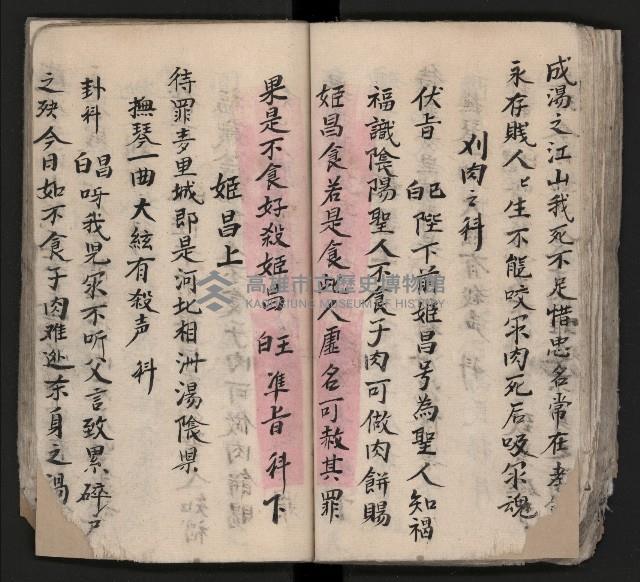 成湯之江山我死不足惜忠名常在孝
永存賤人々生不能咬尔肉死后吸尔魂
刈肉之科
伏旨 白 妲 陛下前姬昌号為聖人知禍
福識陰陽聖人不食子肉可做肉餅賜
姬昌食若是食此人虛名可赦其罪
果是不食好殺姬昌 白 王 準旨 科 下
姬昌上
待罪羑里城即是河北相洲湯陰県
撫琴一曲大絃有殺声 科
卦科 白 昌 呀我児尔不听父言致累碎
之殃今日如不食子肉难逃奈身之
高雄市立歷史博物館
KAOHSIUNG MUSEUM OF HISTORY